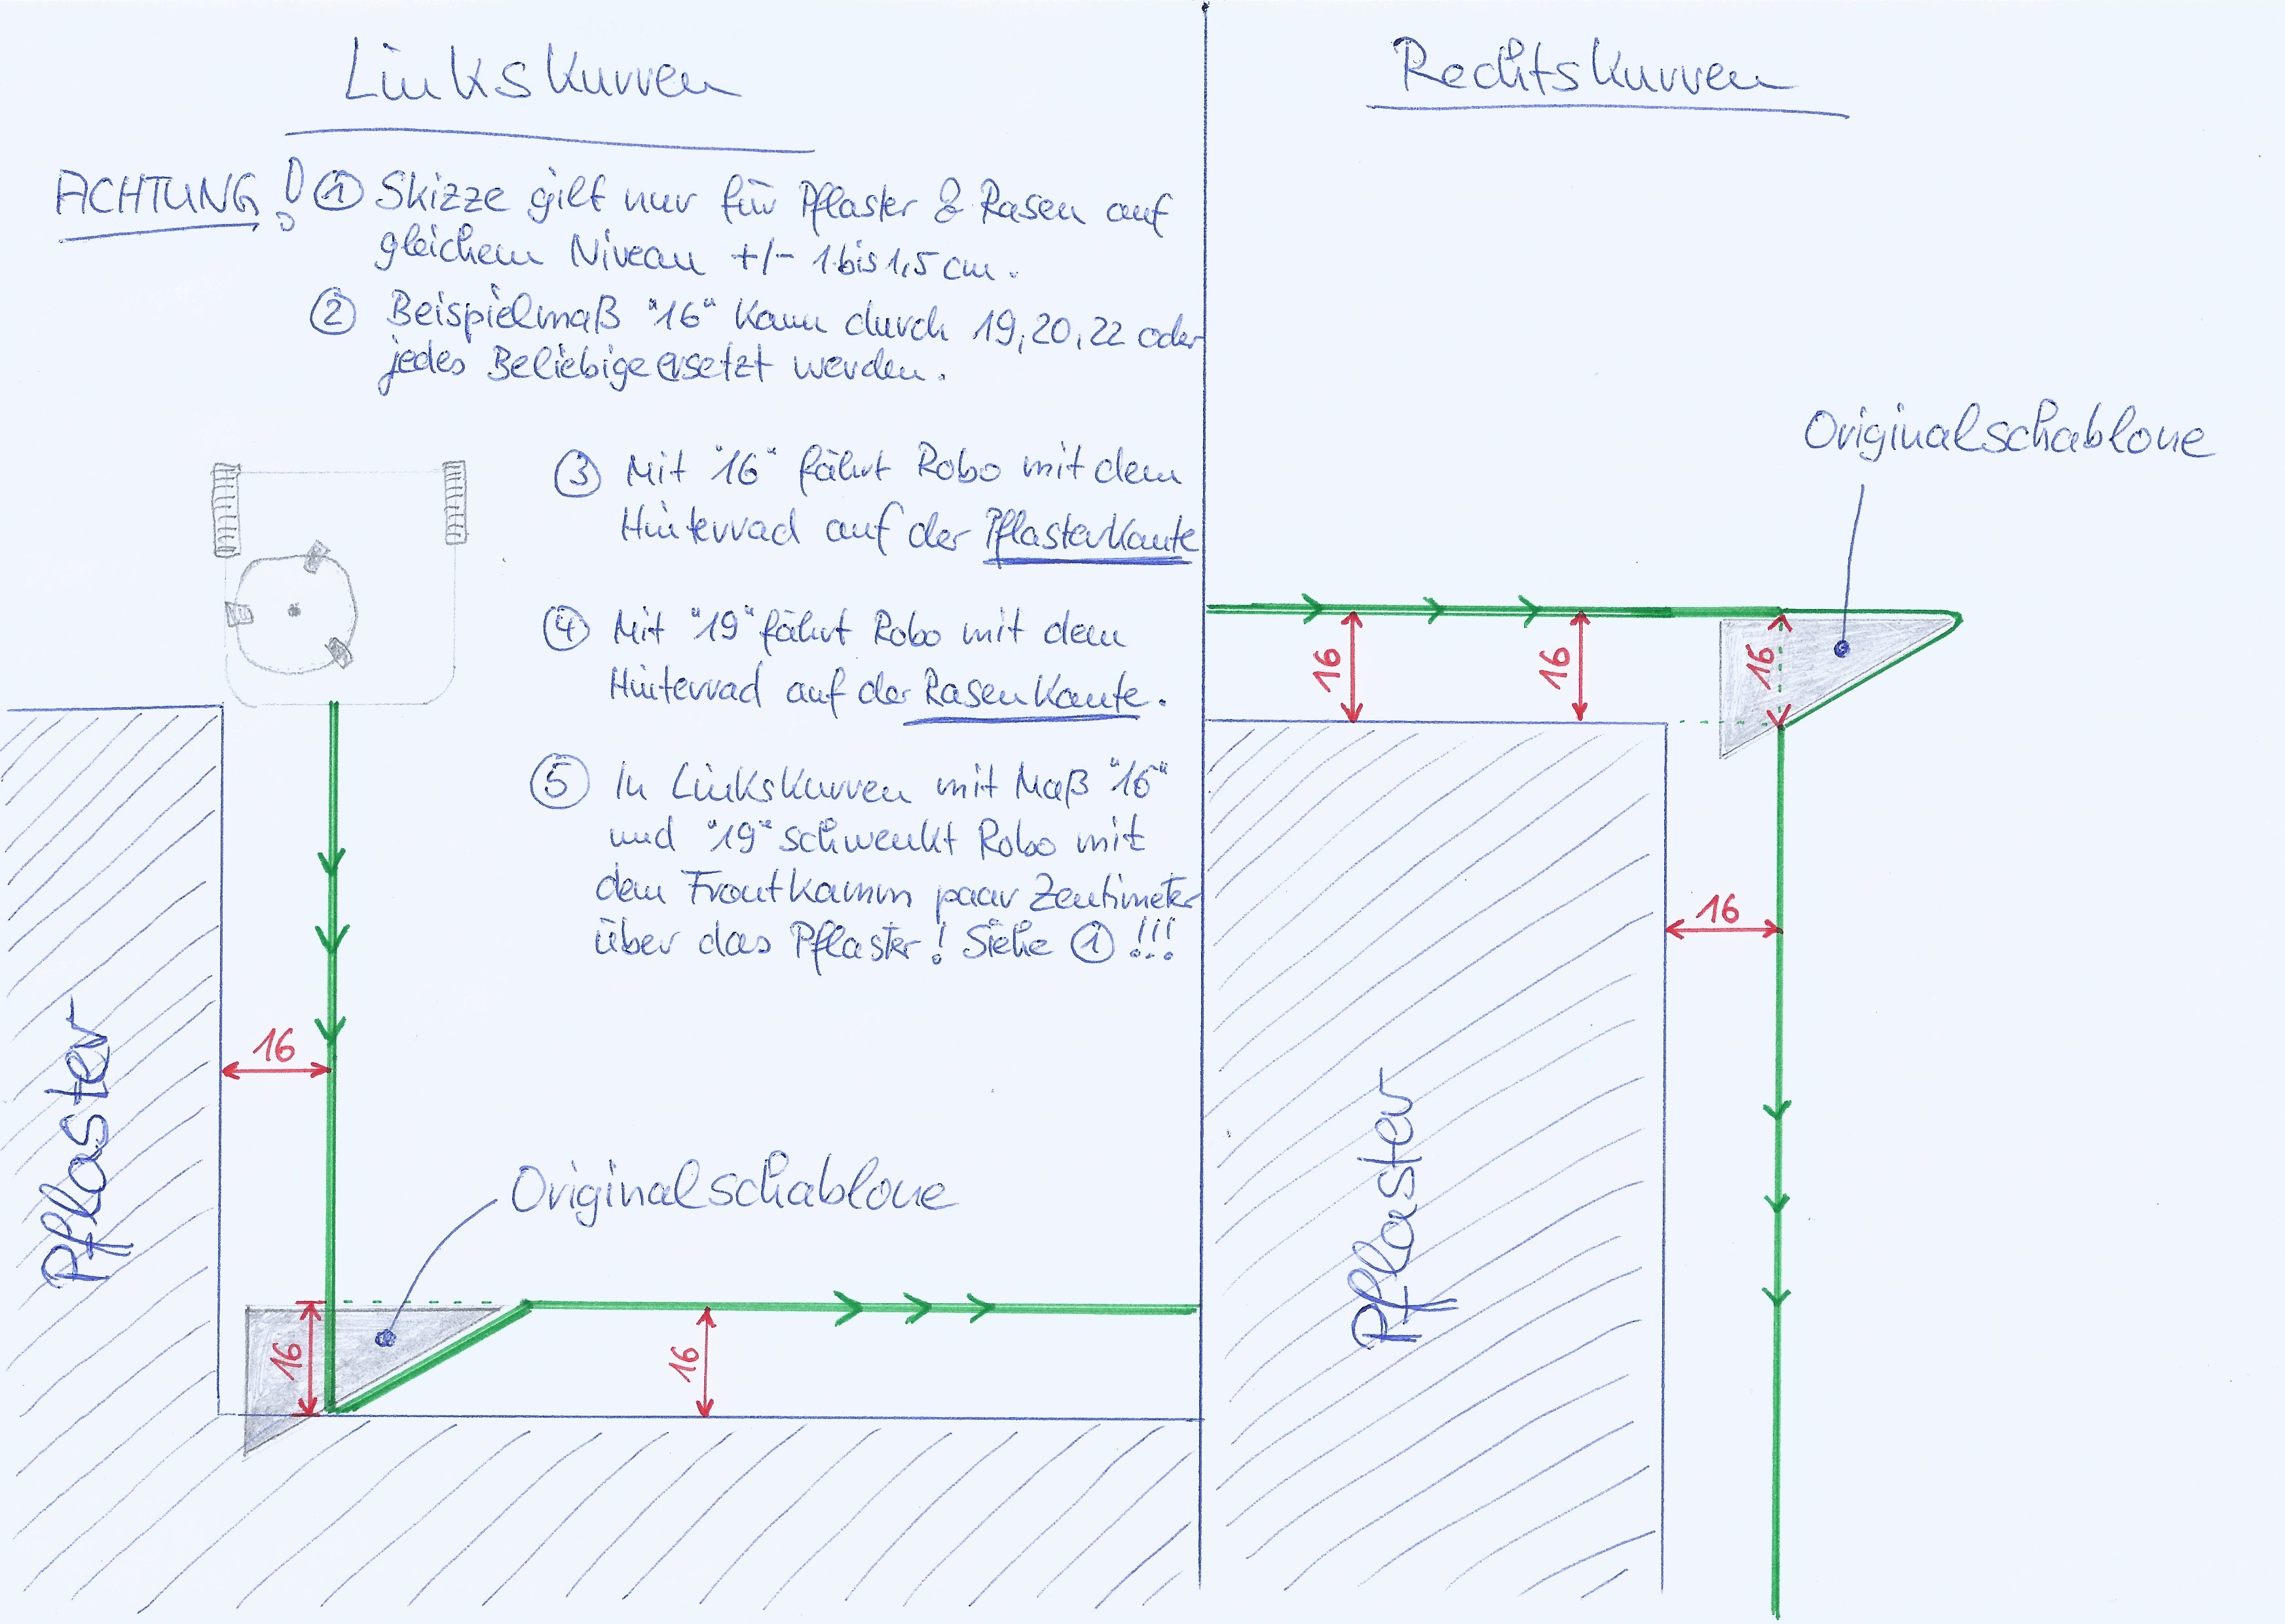 Linkskurven
ACHTUNG! ① Skizze gilt nur für Pflaster & Rasen auf
gleichem Niveau +/- 1 bis 1,5 cm.
② Beispielmaß "16" kann durch 19, 20, 22 oder
jedes Beliebige ersetzt werden.
③ Mit "16" fährt Robo mit dem
Hinterrad auf der Pflasterkante
④ Mit "19" fährt Robo mit dem
Hinterrad auf der Rasenkante.
⑤ In Linkskurven mit Maß "16"
und "19" schwenkt Robo mit
dem Frontkamm paar Zentimeter
über das Pflaster! Siehe ① !!!
16
Pflaster
Originalschablone
16
16
Rechtskurven
Originalschablone
16
16
16
16
Pflaster